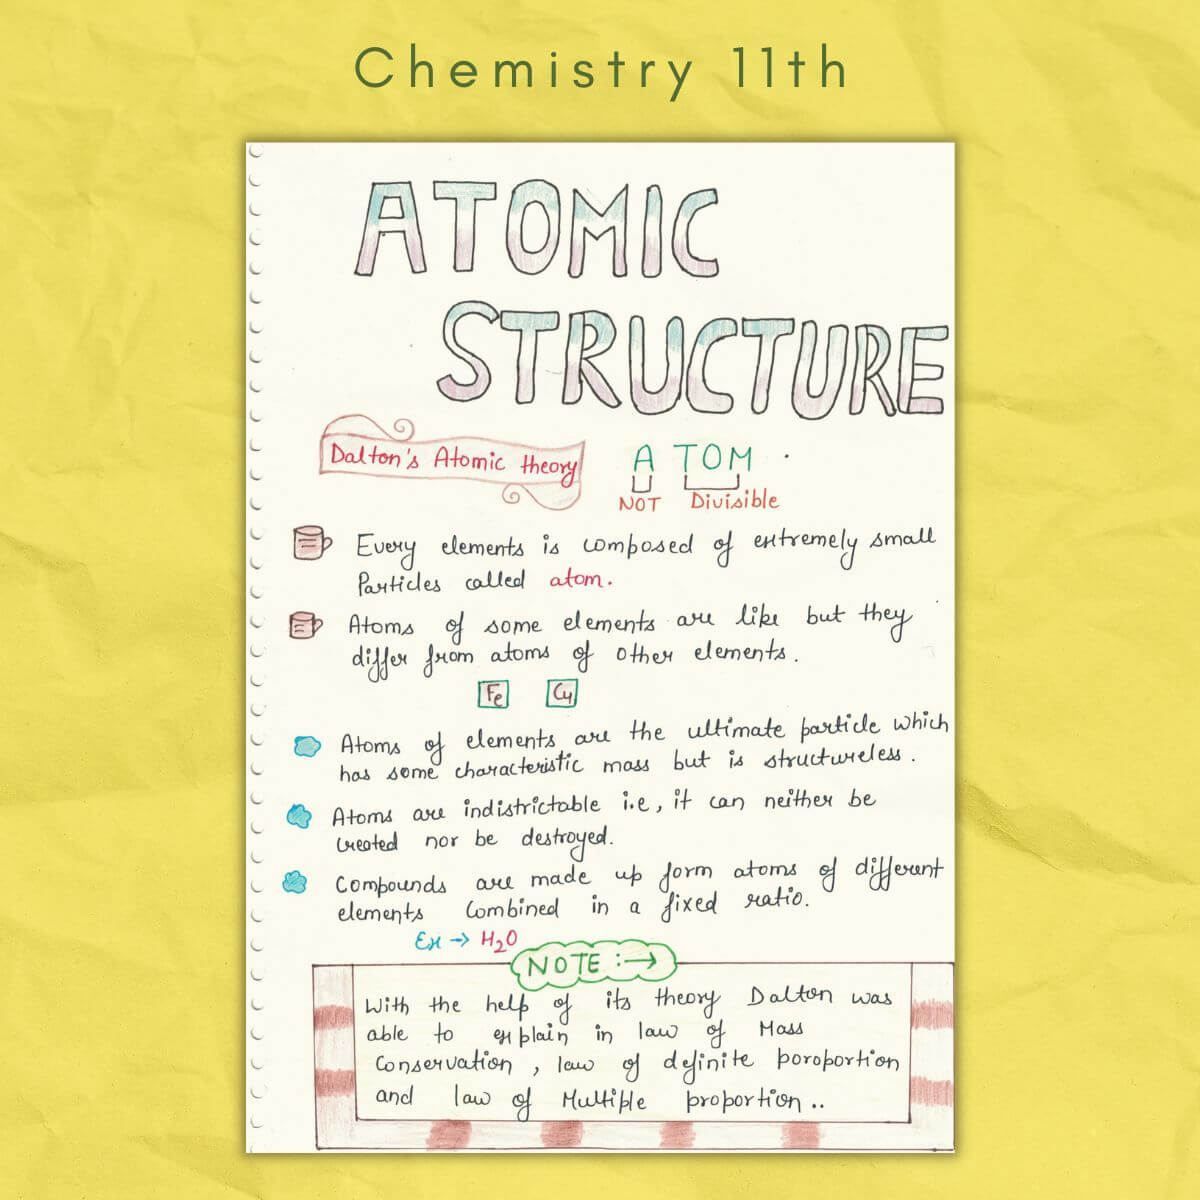 Chemistry 11th
ATOMIC
STRUCTURE
Dalton's Atomic theory
A TOM
NOT Divisible
Every elements is composed of extremely small
Particles called atom.
Atoms of some elements are like but they
differ from atoms of other elements.
Fe Cu
Atoms of elements are the ultimate particle which
has some characteristic mass but is structureless.
Atoms are indistrictable i.e, it can neither be
created nor be destroyed.
Compounds are made up form atoms of different
elements combined in a fixed ratio.
Ex → H2O
NOTE :→
With the help of its theory Dalton was
able to explain in law of Mass
Conservation, law of definite poroportion
and law of Multiple proportion..